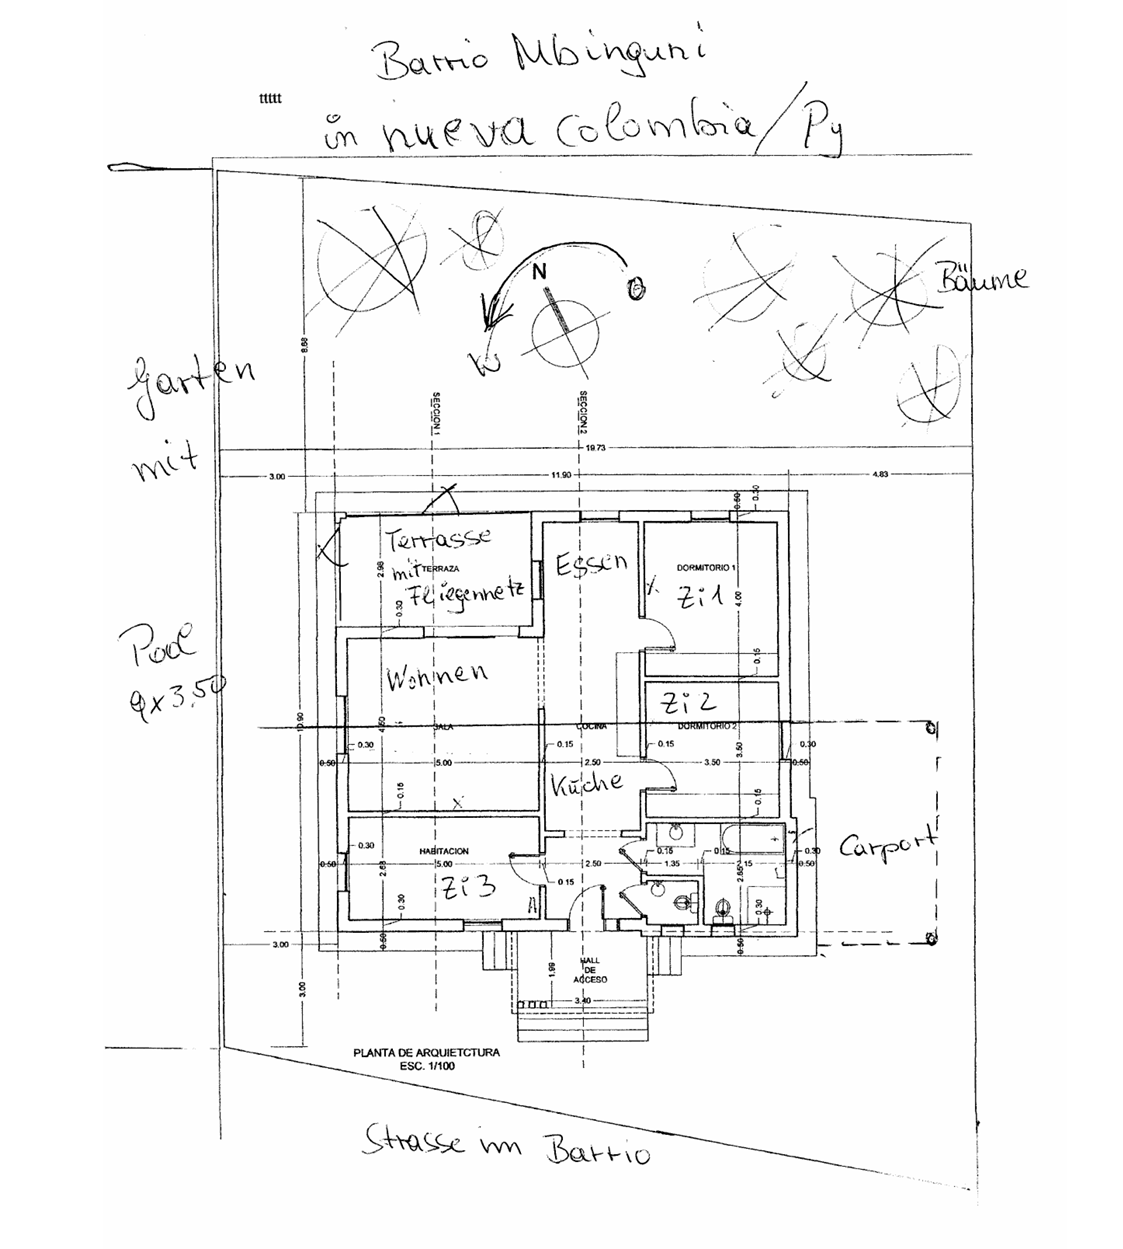 Barrio Mbinguni
ttttt
in nueva Colombia/Py
Bäume
N
W
O
8.68
Garten
mit
SECCION 1
SECCION 2
19.73
3.00
11.90
4.83
0.60
0.30
Terrasse
mit TERRAZA
Fliegennetz
2.98
0.30
Essen
DORMITORIO 1
Zi 1
4.00
0.15
Pool
9x3,50
Wohnen
Zi 2
10.90
4.50
SALA
COCINA
DORMITORIO 2
0.50
0.30
5.00
0.15
2.50
0.15
3.50
3.50
0.30
0.50
Küche
0.15
0.15
Carport
HABITACION
0.30
0.50
5.00
2.63
Zi 3
0.15
2.50
0.15
1.35
0.15
2.15
2.55
0.30
0.50
0.30
0.30
3.00
0.50
0.50
HALL
DE
ACCESO
1.99
3.40
3.00
PLANTA DE ARQUIETCTURA
ESC. 1/100
Strasse im Barrio